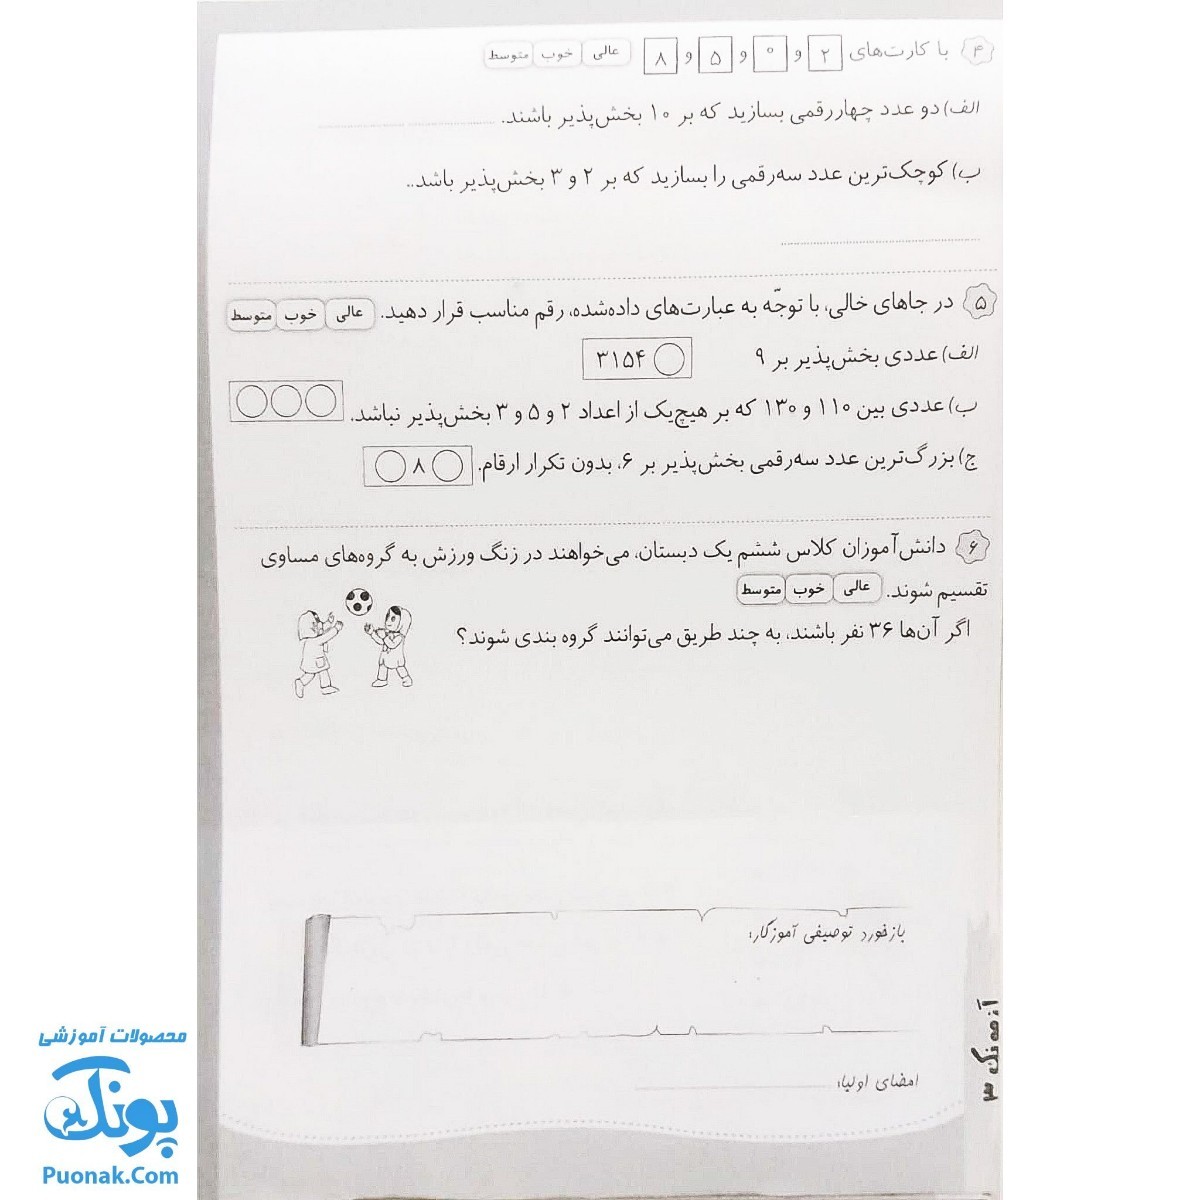 ۴ با کارت‌های ۲ و ۰ و ۵ و ۸ عالی خوب متوسط
الف) دو عدد چهاررقمی بسازید که بر ۱۰ بخش‌پذیر باشند.
ب) کوچک‌ترین عدد سه‌رقمی را بسازید که بر ۲ و ۳ بخش‌پذیر باشد..
۵ در جاهای خالی، با توجّه به عبارت‌های داده‌شده، رقم مناسب قرار دهید. عالی خوب متوسط
الف) عددی بخش‌پذیر بر ۹ ۳۱۵۴
ب) عددی بین ۱۱۰ و ۱۳۰ که بر هیچ‌یک از اعداد ۲ و ۵ و ۳ بخش‌پذیر نباشد.
ج) بزرگ‌ترین عدد سه‌رقمی بخش‌پذیر بر ۶، بدون تکرار ارقام. ۸
۶ دانش‌آموزان کلاس ششم یک دبستان، می‌خواهند در زنگ ورزش به گروه‌های مساوی
تقسیم شوند. عالی خوب متوسط
اگر آن‌ها ۳۶ نفر باشند، به چند طریق می‌توانند گروه بندی شوند؟
بازخورد توصیفی آموزگار:
امضای اولیا:
آزمونک ۳
محصولات آموزشی
پونک
Puonak.Com